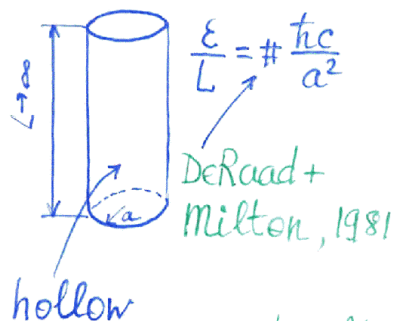 L→∞
ε/L = # ħc/a²
a
DeRaad +
Milton, 1981
hollow